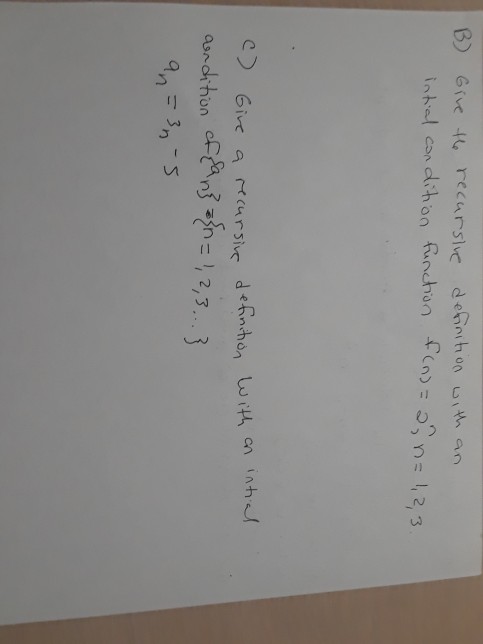 B) Give the recursive definition with an
intial condition function f(n) = 2ⁿ, n = 1, 2, 3.
C) Give a recursive definition With an intial
condition of {aₙ} = {n = 1, 2, 3 ... }
aₙ = 3n - 5